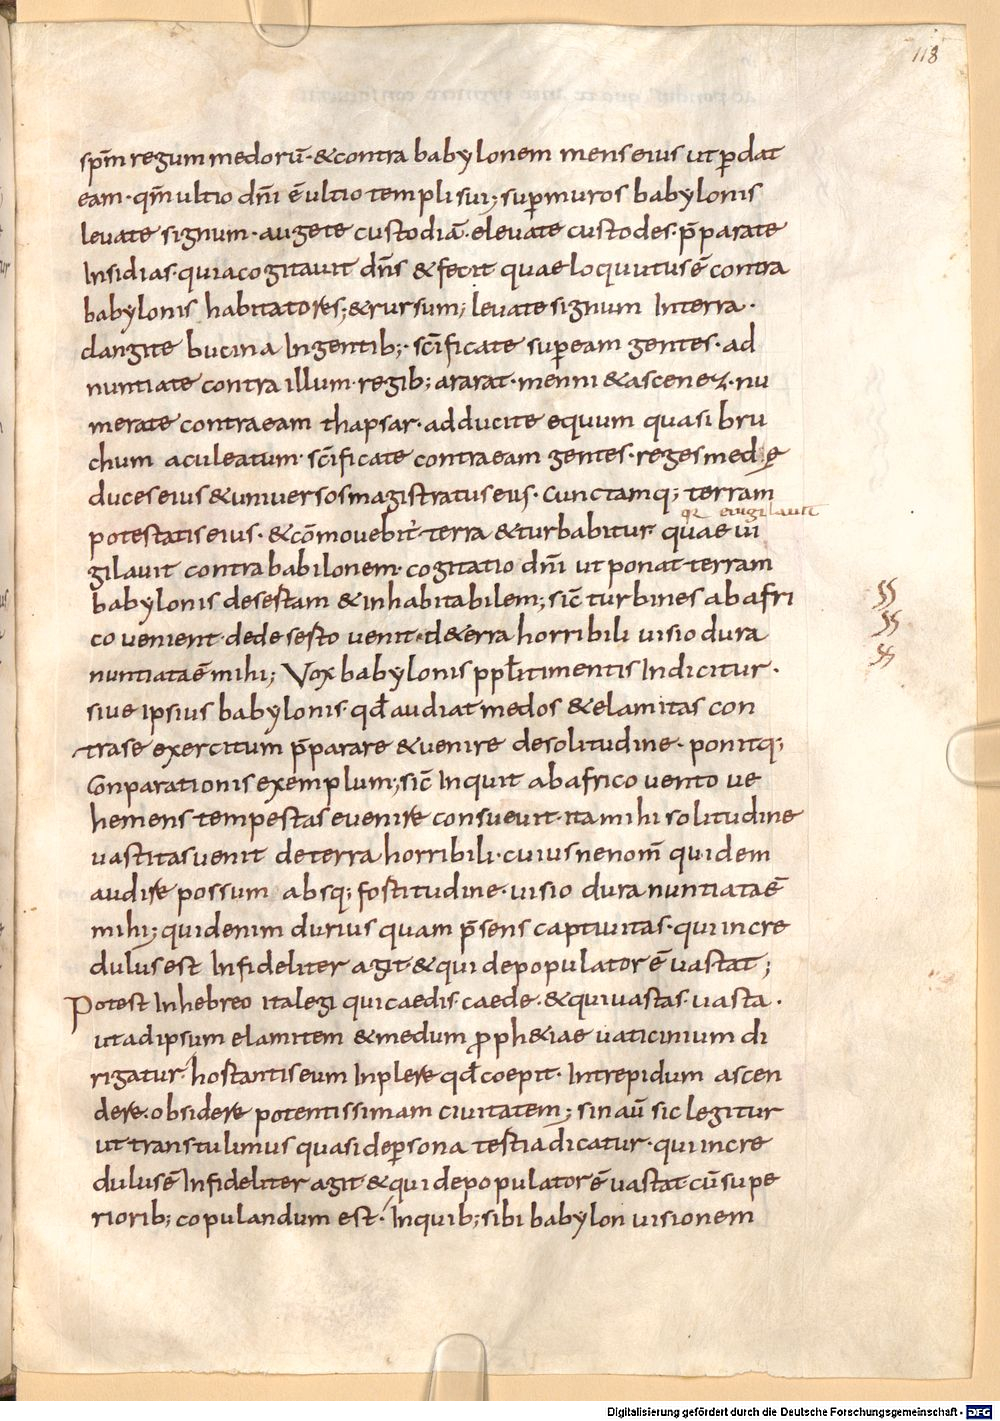 118
sp̄m regum medorū· &contra babylonem mens eius ut ꝑdat
eam· qm̄ ultio dn̄i ē ultio templi sui; suꝑ muros babylonis
levate signum· augete custodiā· elevate custodes· p̄parate
Insidias· quia cogitavit dn̄s & fecit quae loquutus ē contra
babylonis habitatores; & rursum; levate signum In terra·
clangite bucina In gentib;· sc̄ificate suꝑ eam gentes· ad
nuntiate contra illum· regib; ararat· menni & ascenez· nu
merate contra eam thapsar· adducite equum quasi bru
chum aculeatum· sc̄ificate contra eam gentes· reges medię
duces eius & universos magistratus eius· Cunctamq; terram
qr evigilavit
potestatis eius· & cōmovebit̉ terra & turbabitur quae vi
gilavit contra babilonem· cogitatio dn̄i ut ponat terram
babylonis desestam & inhabitabilem; sic̄ turbines ab afri
co venient· de desesto venit· d&erra horribili visio dura
nuntiata ē mihi; Vox babylonis ppłi timentis Indicitur·
sive ipsius babylonis· qđ audiat medos & elamitas con
tra se exercitum p̄parare & venire de solitudine· ponitq;
Conparationis exemplum; sic̄ Inquit ab africo vento ve
hemens tempestas evenire consuevit· ita mihi solitudine
vastitas venit de terra horribili· cuius ne nom̄ quidem
audire possum absq; fostitudine· visio dura nuntiata ē
mihi; quid enim durius quam p̄sens captivitas· qui incre
dulus est Infideliter agit· & qui depopulator ē vastat;
Potest In hebreo ita legi qui caedis· caede· & qui vastas· vasta·
ut ad ipsum elamitem & medum ꝓph&iae vaticinium di
rigatur· hostantis eum Inplere qđ coepit· Intrepidum ascen
dere· obsidere potentissimam civitatem; sin aū sic legitur
ut transtulimus quasi de ꝑsona testia dicatur· qui incre
dulus ē Infideliter agit & qui depopulator ē vastat cū supe
riorib; copulandum est· Inquib; sibi babylon visionem
Digitalisierung gefördert durch die Deutsche Forschungsgemeinschaft - DFG